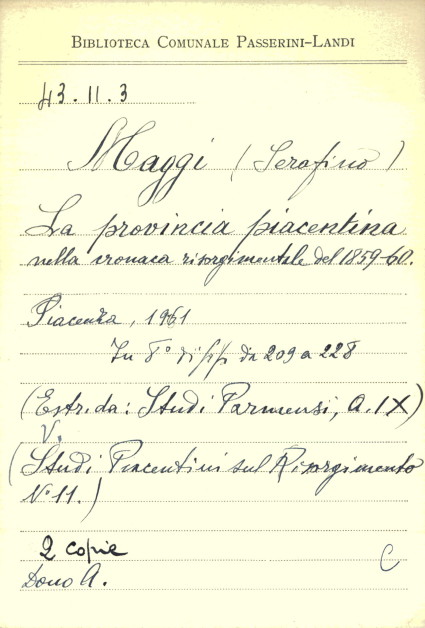 BIBLIOTECA COMUNALE PASSERINI-LANDI
43.11.3
Maggi (Serafino)
La provincia piacentina
nella cronaca risorgimentale del 1859-60.
Piacenza, 1961
In 8° di pp. da 209 a 228
(Estr. da: Studi Parmensi, A. IX)
V.
(Studi Piacentini sul Risorgimento
N° 11.)
2 copie
C
Dono A.